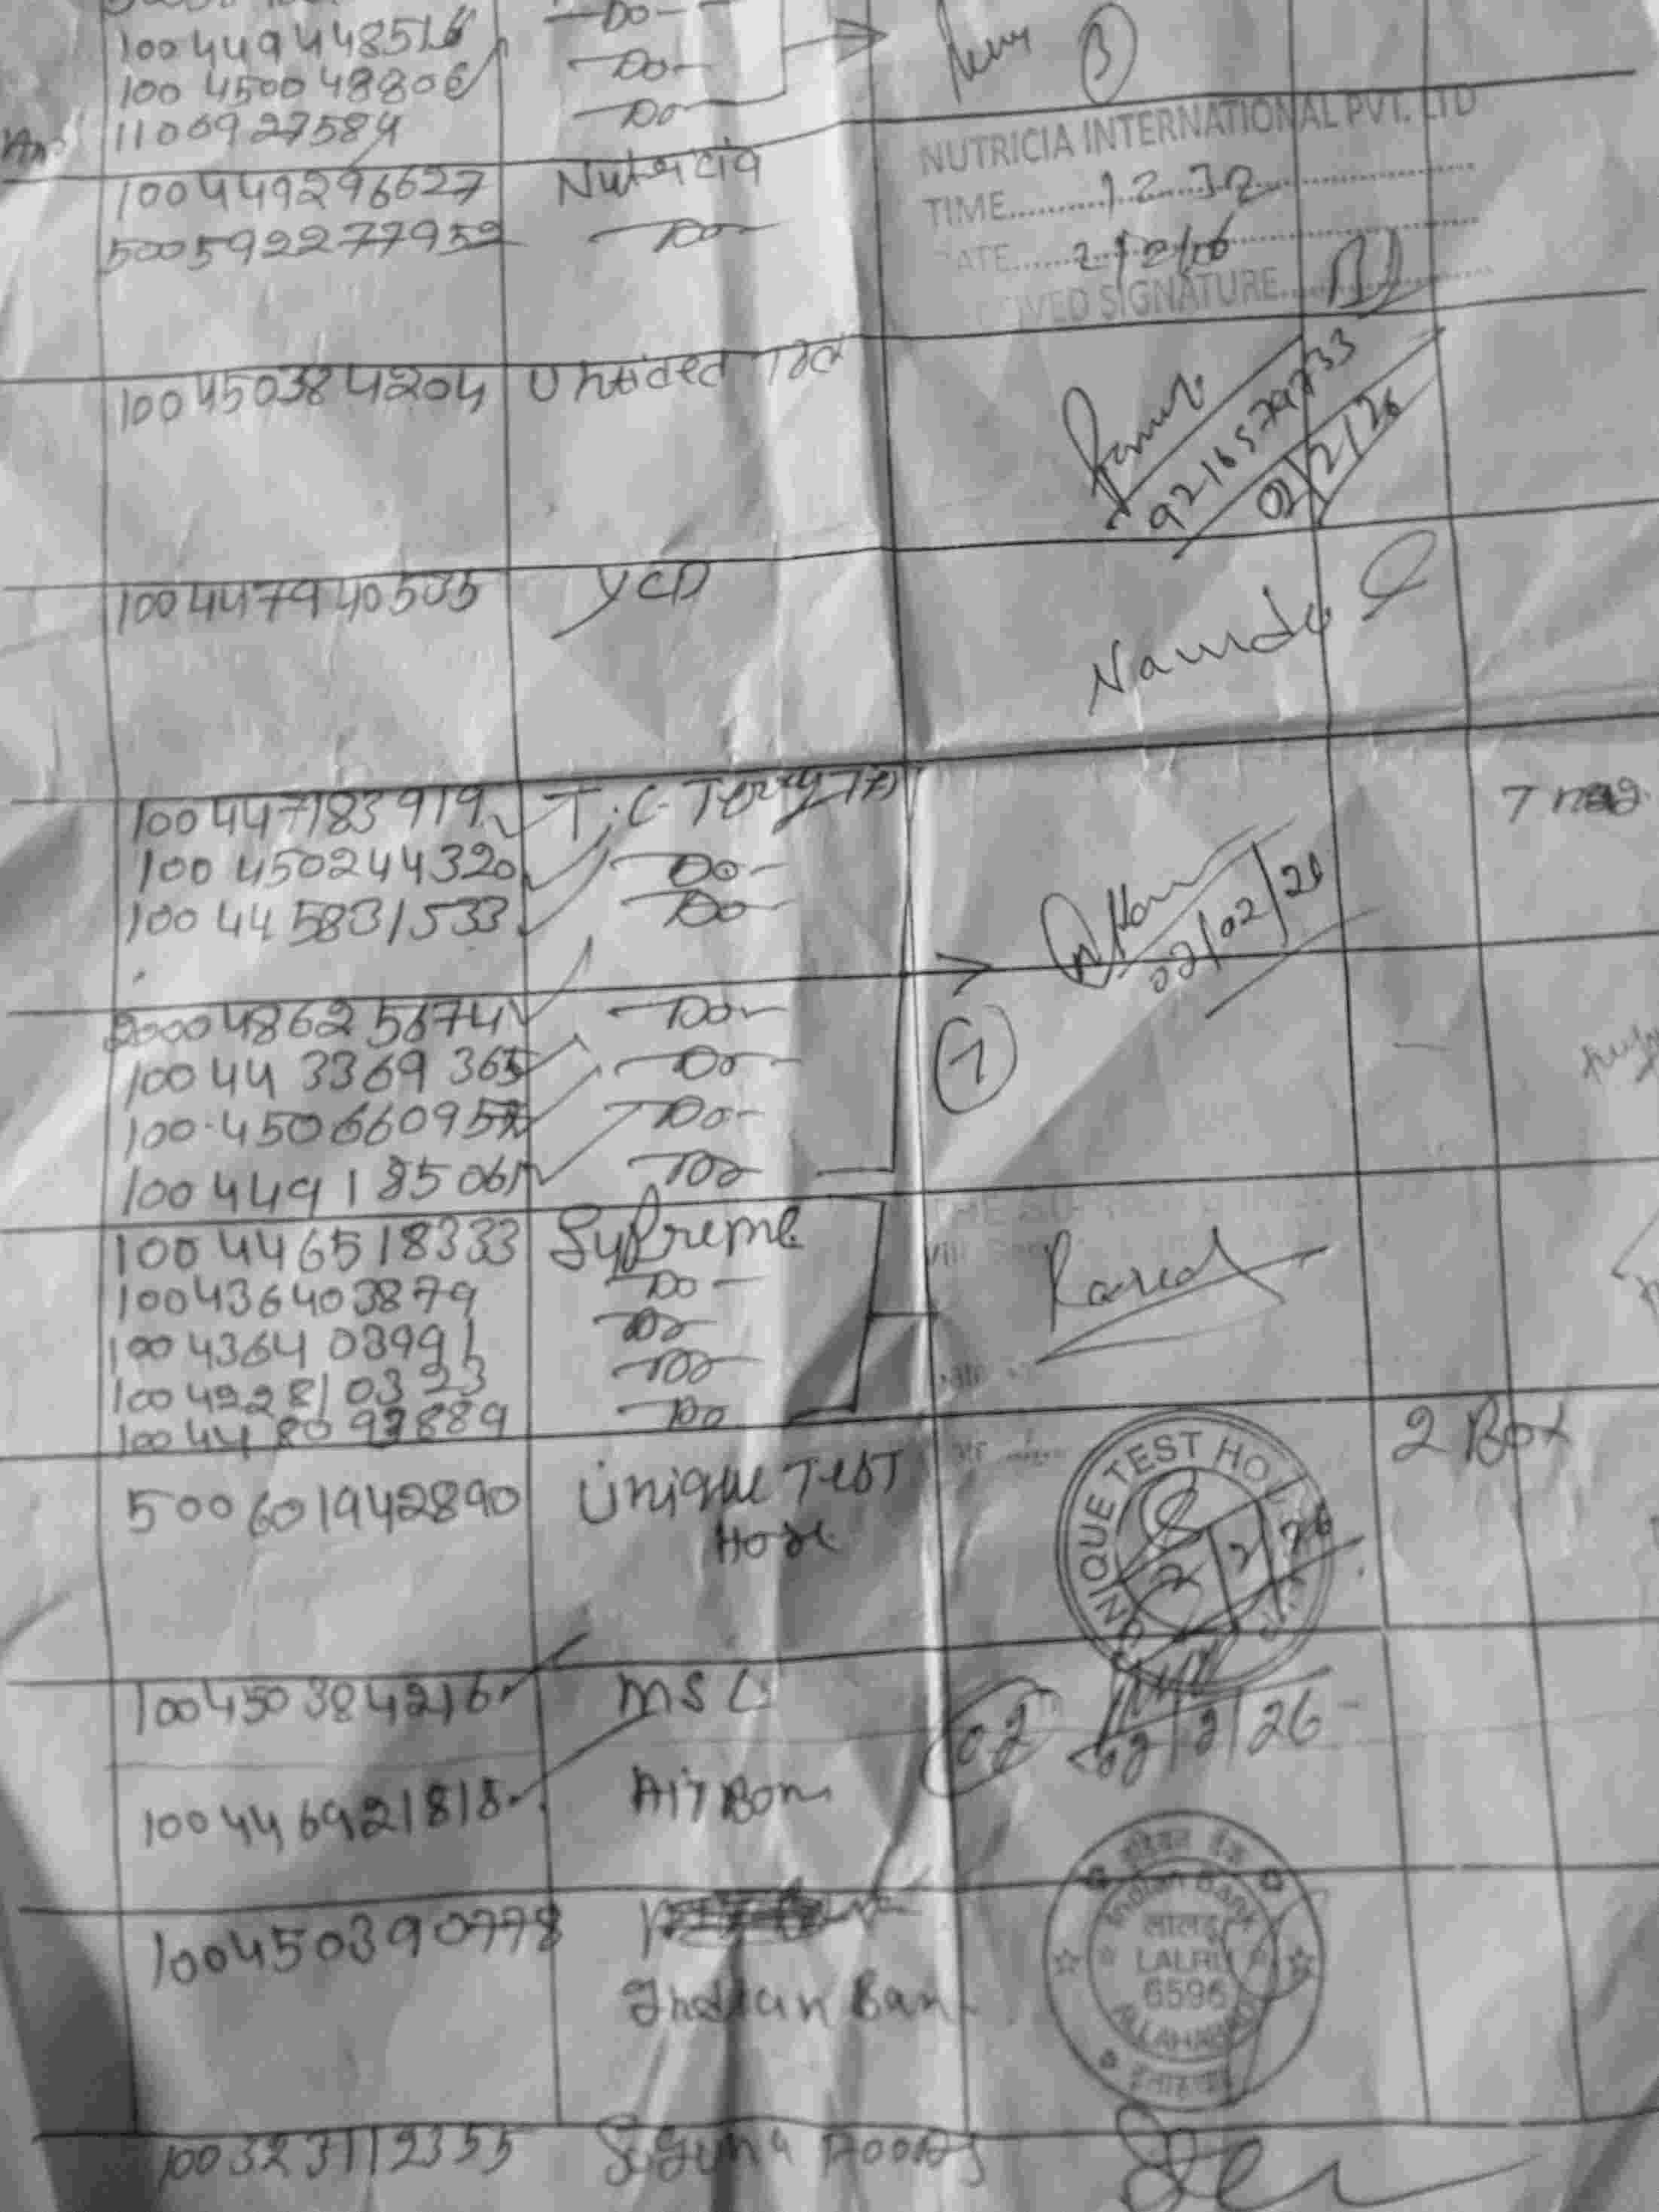 100449448516 -Do-
100450048806 -Do-
1106927584 -Do-
3
100449296627 Nutricia
500592277952 -Do-
NUTRICIA INTERNATIONAL PVT. LTD
TIME 12.32
DATE 2/2/26
SIGNATURE
100450384204
9216579733
02/2/26
100447940505 YCD
100447183919 T.C.
7 nag
100450244320 -Do-
100445831533 -Do-
02/02/26
200048625674 -Do-
100443369365 -Do-
7
100450660952 -Do-
100449185061 -Do-
100446518333 Supreme
100436403879 -Do-
100436403991 -Do-
100422810323 -Do-
100448092889 -Do-
5006601942890 Unique Test
2 Box
UNIQUE TEST HO
2/2/26
100450384216 MSC
02
02/2/26
100446921818
100450390778
Indian Ban
इंडियन बैंक
Indian Bank
लालड़ू
LALRU
6596
ALLAHABAD
इलाहाबाद
100323112355